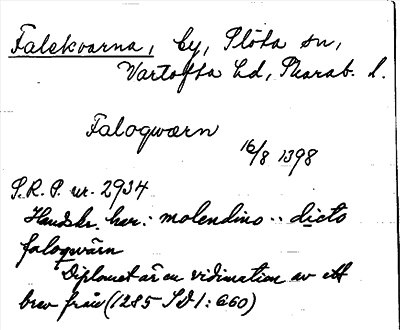 Falekvarna, by, Plöta sn,
Vartofta hd, Skarab. l.
Faloqwærn
16/8 1398
S.R.P. nr. 2934
Handskr. har: molendino .. dicto
faloqwärn
Diplomet är en vidimation av ett
brev från (1285 SD 1: 660)